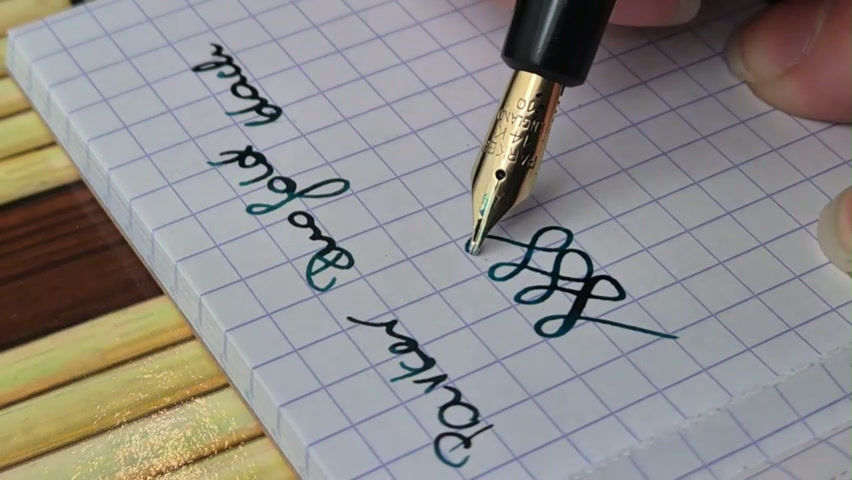 Parker Duofold black
PARKER
14 K
ENGLAND
10